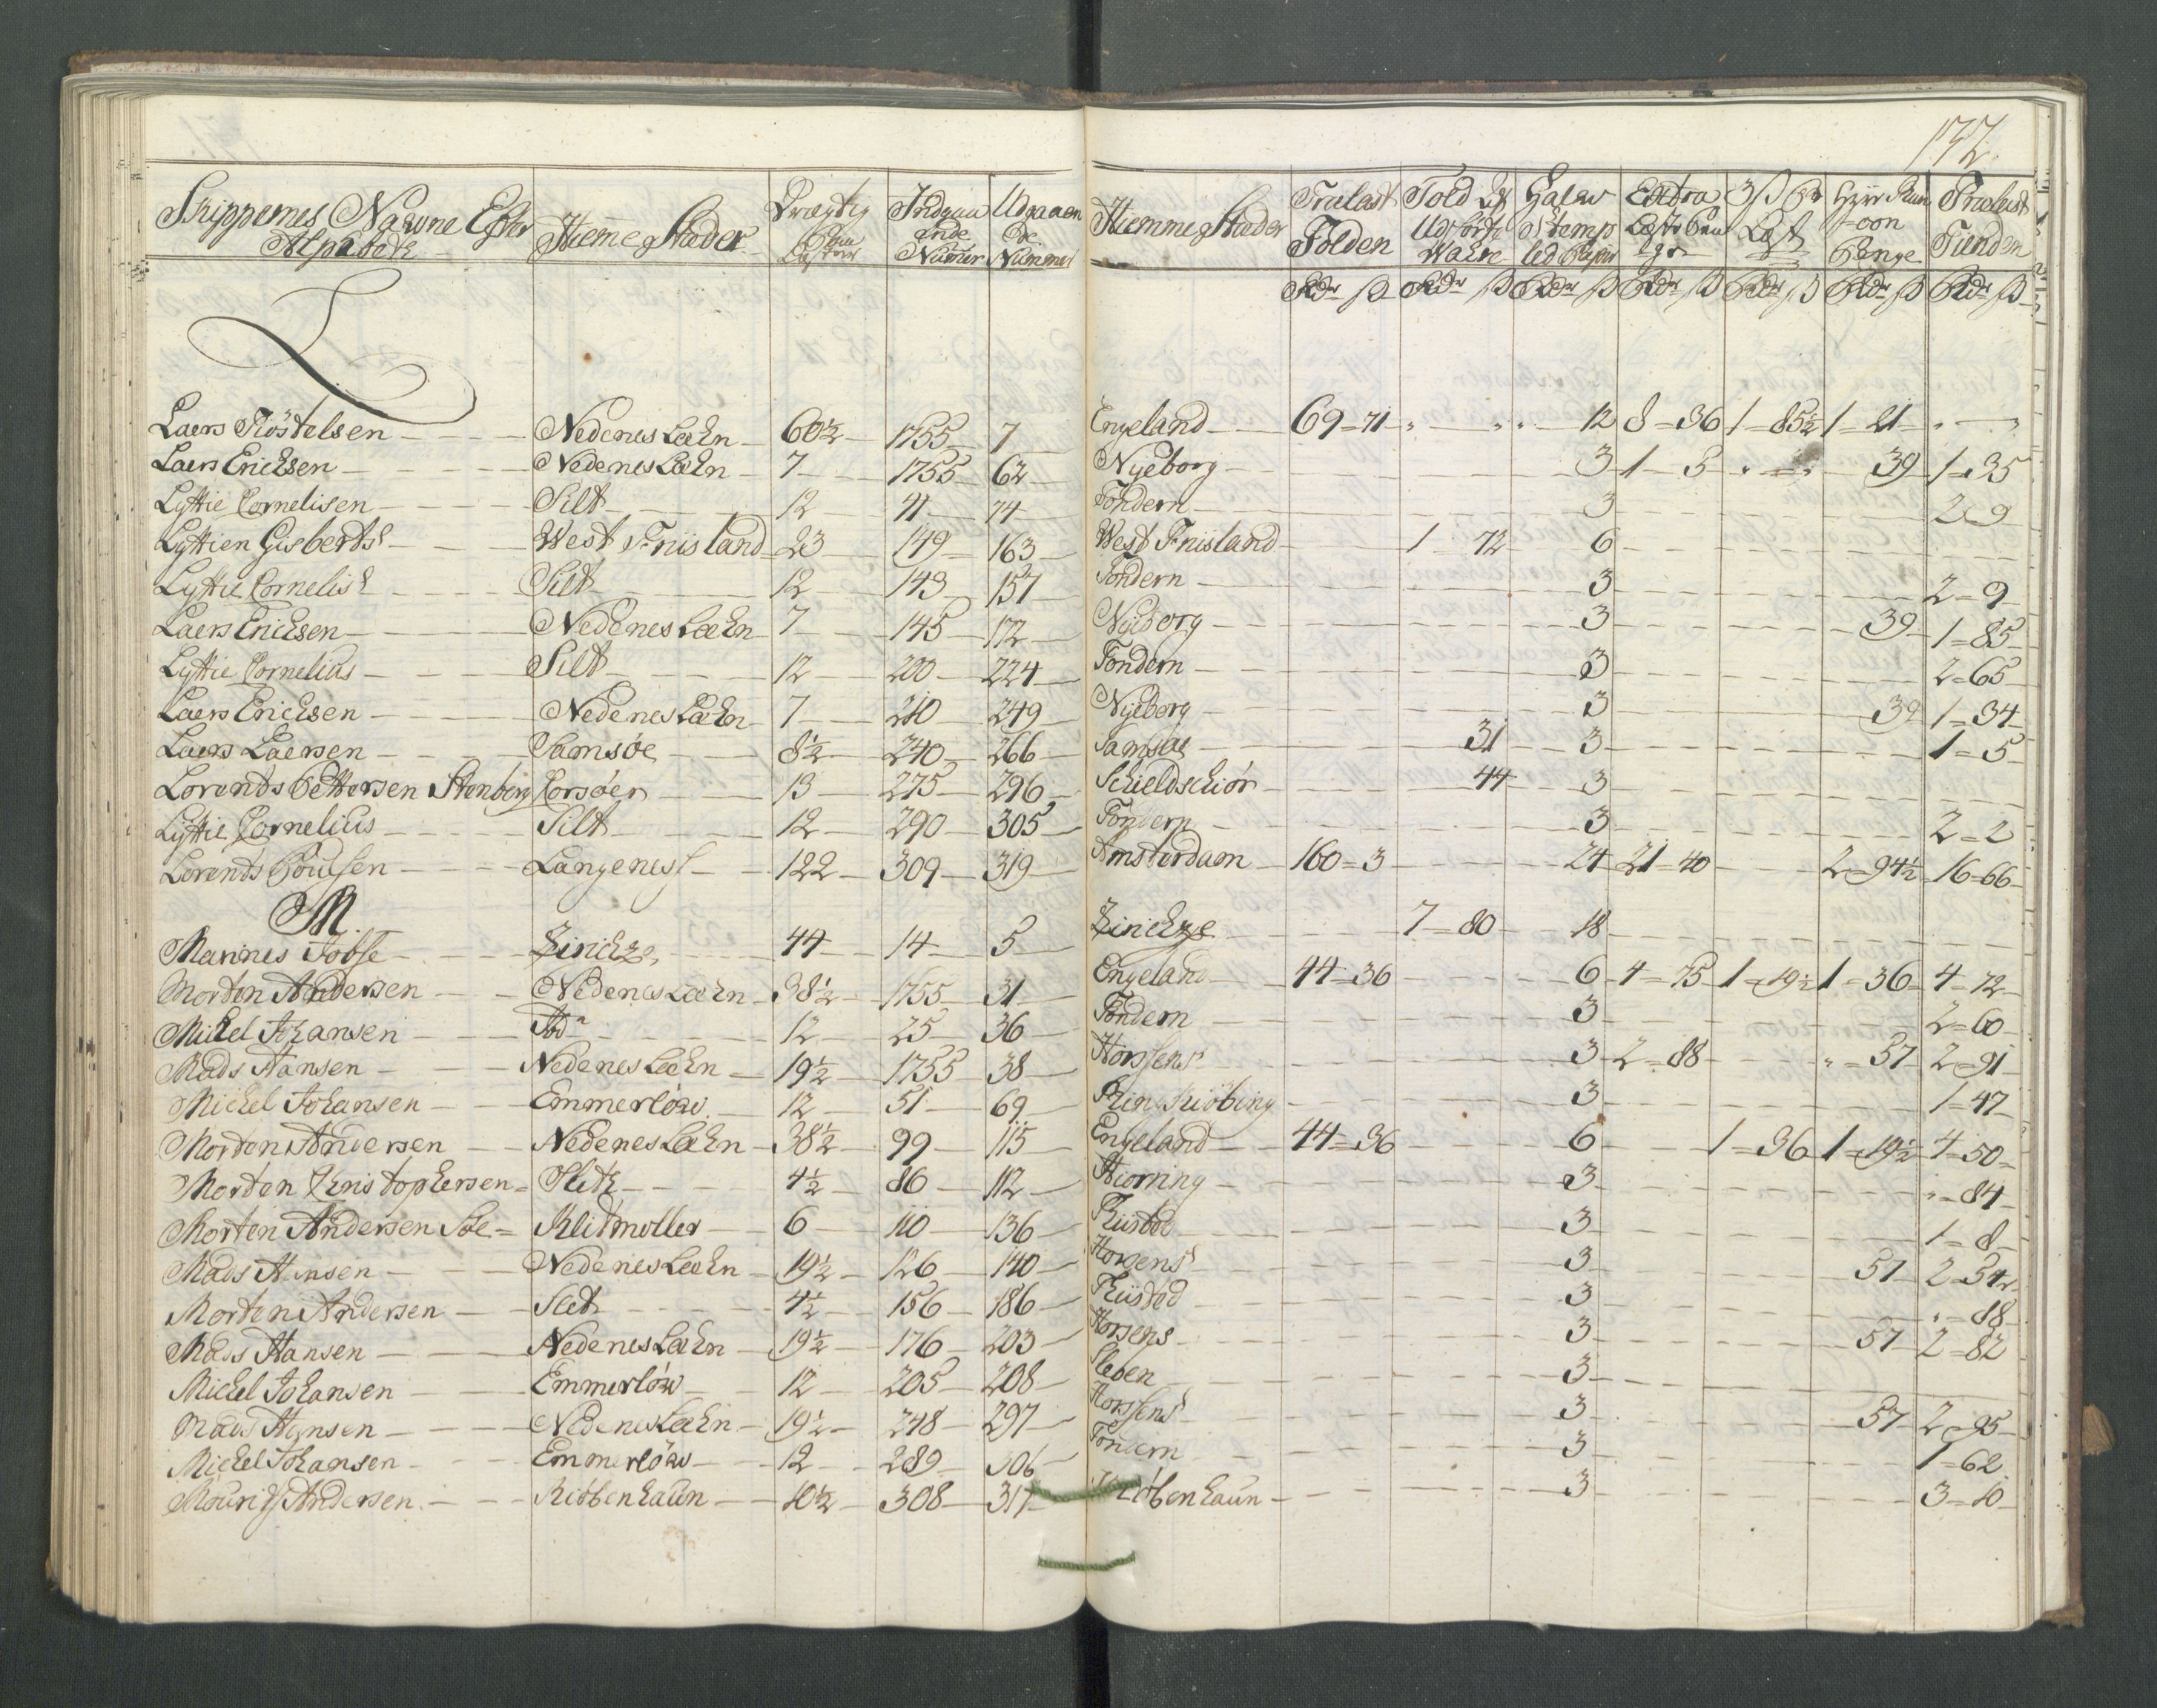 172.
Skippernes Nahvne Efter Alphabeth | Hiemme Stæder | Drægtig Paa Læster | Indgaaende Numer | Udgaaende Nummer | Hiemmestæder | Trælast Tolden | Told af Udførte Wahre | Halw Stempled Papiir | Extra Læste Penge | 3 β Pr Læst | Fyhr Penge | Trælast Tienden
Rdr β | Rdr β | Rdr β | Rdr β | Rdr β | Rdr β | Rdr β
L
Laers Kiöstelsen — Nedenes Læhn — 60½ — 1755 — 7 — Engeland — 69=71 — 12 — 8=36 — 1=85½ — 1=21
Laers Erichsen — Nedenes Læhn — 7 — 1755 — 62 — Nyeborg — 3 — 1=3 — 39 — 1=35
Lyttie Cornelisen — Silt — 12 — 41 — 74 — Tondern — 3 — 2=9
Lyttien Gisberts — West Friisland — 23 — 149 — 163 — West Friisland — 1=72 — 6
Lyttie Cornelis — Silt — 12 — 143 — 157 — Tondern — 3 — 2=9
Laers Erichsen — Nedenes Læhn — 7 — 145 — 172 — Nyeborg — 3 — 39 — 1=85
Lyttie Cornelius — Silt — 12 — 200 — 224 — Tondern — 3 — 2=65
Laers Erichsen — Nedenes Læhn — 7 — 210 — 249 — Nyeborg — 3 — 39 — 1=34
Laers Laersen — Samsöe — 8½ — 240 — 266 — Samsöe — 31 — 3 — 1=5
Lorends Pettersen Stenberg — Corsöer — 13 — 275 — 296 — Schieldschiör — 44 — 3
Lyttie Cornelius — Silt — 12 — 290 — 305 — Tondern — 3 — 2=2
Lorends Poulsen — Langeness — 122 — 309 — 319 — Amsterdam — 160=3 — 24 — 21=40 — 2=94½ — 16=66
M.
Marines Jobse — Zirichze — 44 — 14 — 5 — Zirichze — 7=80 — 18
Morten Andersen — Nedenes Læhn — 38½ — 1755 — 31 — Engeland — 44=36 — 6 — 4=75 — 1=19½ — 1=36 — 4=72
Michel Johansen — 12 — 25 — 36 — Tondern — 3 — 2=60
Mads Hansen — Nedenes Læhn — 19½ — 1755 — 38 — Horssens — 3 — 2=88 — 57 — 2=91
Michel Johansen — Emmerlöw — 12 — 51 — 69 — Ringkiöbing — 3 — 1=47
Morten Andersen — Nedenes Læhn — 38½ — 99 — 115 — Engeland — 44=36 — 6 — 1=36 — 1=19½ — 4=50
Morten Christophersen — Sleth — 4½ — 86 — 112 — Hiorring — 3 — 84
Morten Andersen — Klitmoller — 6 — 110 — 136 — Thisted — 3 — 1=8
Mads Hansen — Nedenes Læhn — 19½ — 126 — 140 — Horsens — 3 — 57 — 2=54
Morten Andersen — Slet — 4½ — 156 — 186 — Thisted — 3 — 88
Mads Hansen — Nedenes Læhn — 19½ — 176 — 203 — Horsens — 3 — 57 — 2=82
Michel Johansen — Emmerlöw — 12 — 205 — 208 — 3
Mads Hansen — Nedenes Læhn — 19½ — 248 — 297 — Horssens — 3 — 57 — 2=95
Michel Johansen — Emmerlöw — 12 — 289 — 306 — Tondern — 3 — 1=62
Mourids Andersen — Kiöbenhaun — 10½ — 308 — 317 — Kiöbenhaun — 3 — 3=10